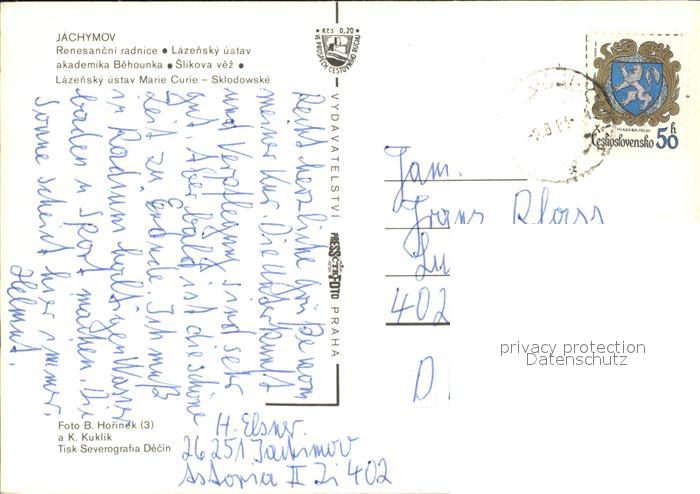 JÁCHYMOV
Renesanční radnice ● Lázeňský ústav
akademika Běhounka ● Šlikova věž ●
Lázeňský ústav Marie Curie – Sklodowské
Kčs 0,20
VE PROSPĚCH CESTOVNÍHO RUCHU
VYDAVATELSTVÍ PRESSFOTO PRAHA
Československo 50 h
Recht herzliche Grüße von
meiner Kur. Die Unterkunft
und Verpflegung sind sehr
gut. Aber bald ist die schöne
Zeit zu Ende. Ich muß
in Radium haltigen Wasser
baden u. Sport machen. Die
Sonne scheint hier immer.
Helmut.
Fam.
Franz
402
D
privacy protection
Datenschutz
Foto B. Hořínek (3)
a K. Kuklík
Tisk Severografia Děčín
H. Elsner
26251 Jachimov
Astoria II Zi 402